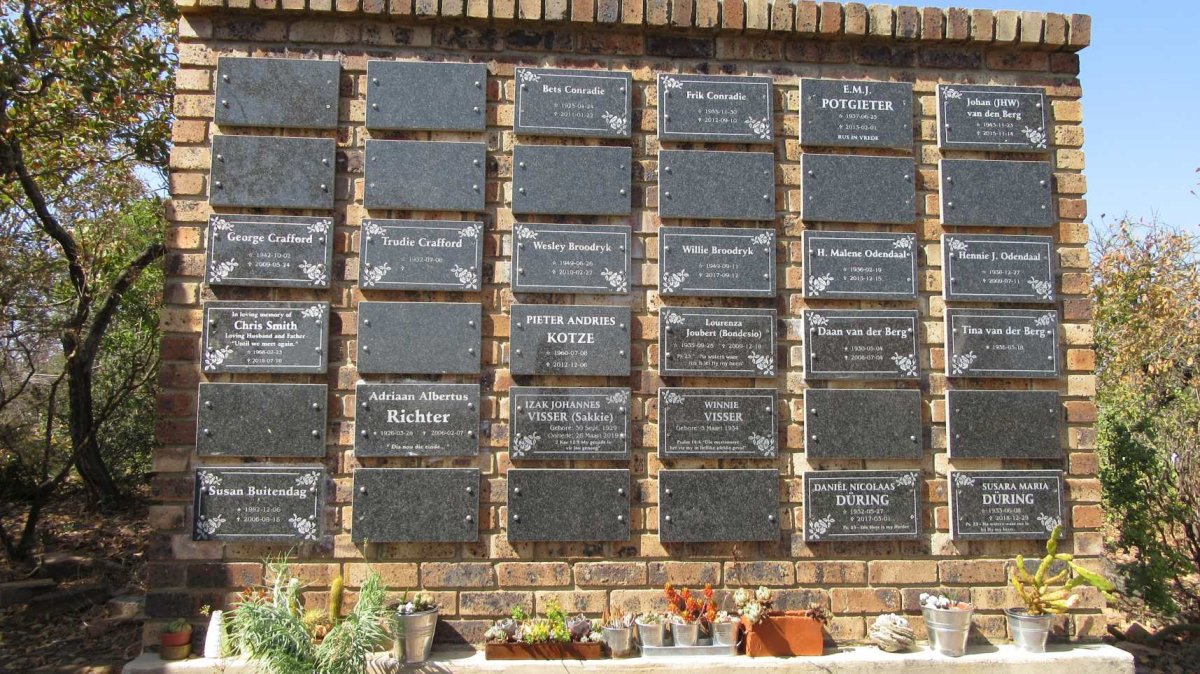 Bets Conradie
☆ 1925-04-24
✝ 2011-01-22
Frik Conradie
✝ 2012-09-10
E.M.J.
POTGIETER
☆ 1937-06-25
✝ 2013-02-01
RUS IN VREDE
Johan (JHW)
van den Berg
☆ 1943-11-23
✝ 2015-11-14
George Crafford
☆ 1942-10-01
✝ 2009-05-24
Trudie Crafford
✝
Wesley Broodryk
☆ 1949-06-26
✝ 2010-02-27
Willie Broodryk
☆ 1949-09-11
✝ 2017-09-12
H. Malene Odendaal
☆ 1936-02-19
✝ 2015-12-15
Hennie J. Odendaal
☆ 1930-12-27
✝ 2009-07-11
In loving memory of
Chris Smith
Loving Husband and Father
"Until we meet again"
☆ 1968-02-23
✝ 2018-07-18
PIETER ANDRIES
KOTZE
☆ 1960-07-08
✝ 2012-12-06
Lourenza
Joubert (Bondesio)
☆ 1935-09-28
✝ 2009-12-19
Daan van der Berg
☆ 1930-05-04
✝ 2008-07-08
Tina van der Berg
☆ 1931-05-18
Adriaan Albertus
Richter
☆ 1926-03-26
✝ 2006-02-07
Dis nou die einde
IZAK JOHANNES
VISSER (Sakkie)
Gebore: 30 Sept. 1929
Oorlede: 26 Maart 2019
WINNIE
VISSER
Gebore: 3 Maart 1934
Susan Buitendag
☆ 1952-12-06
✝ 2006-08-16
DANIËL NICOLAAS
DÜRING
☆ 1932-05-27
✝ 2017-03-01
SUSARA MARIA
DÜRING
☆ 1933-06-08
✝ 2018-12-25